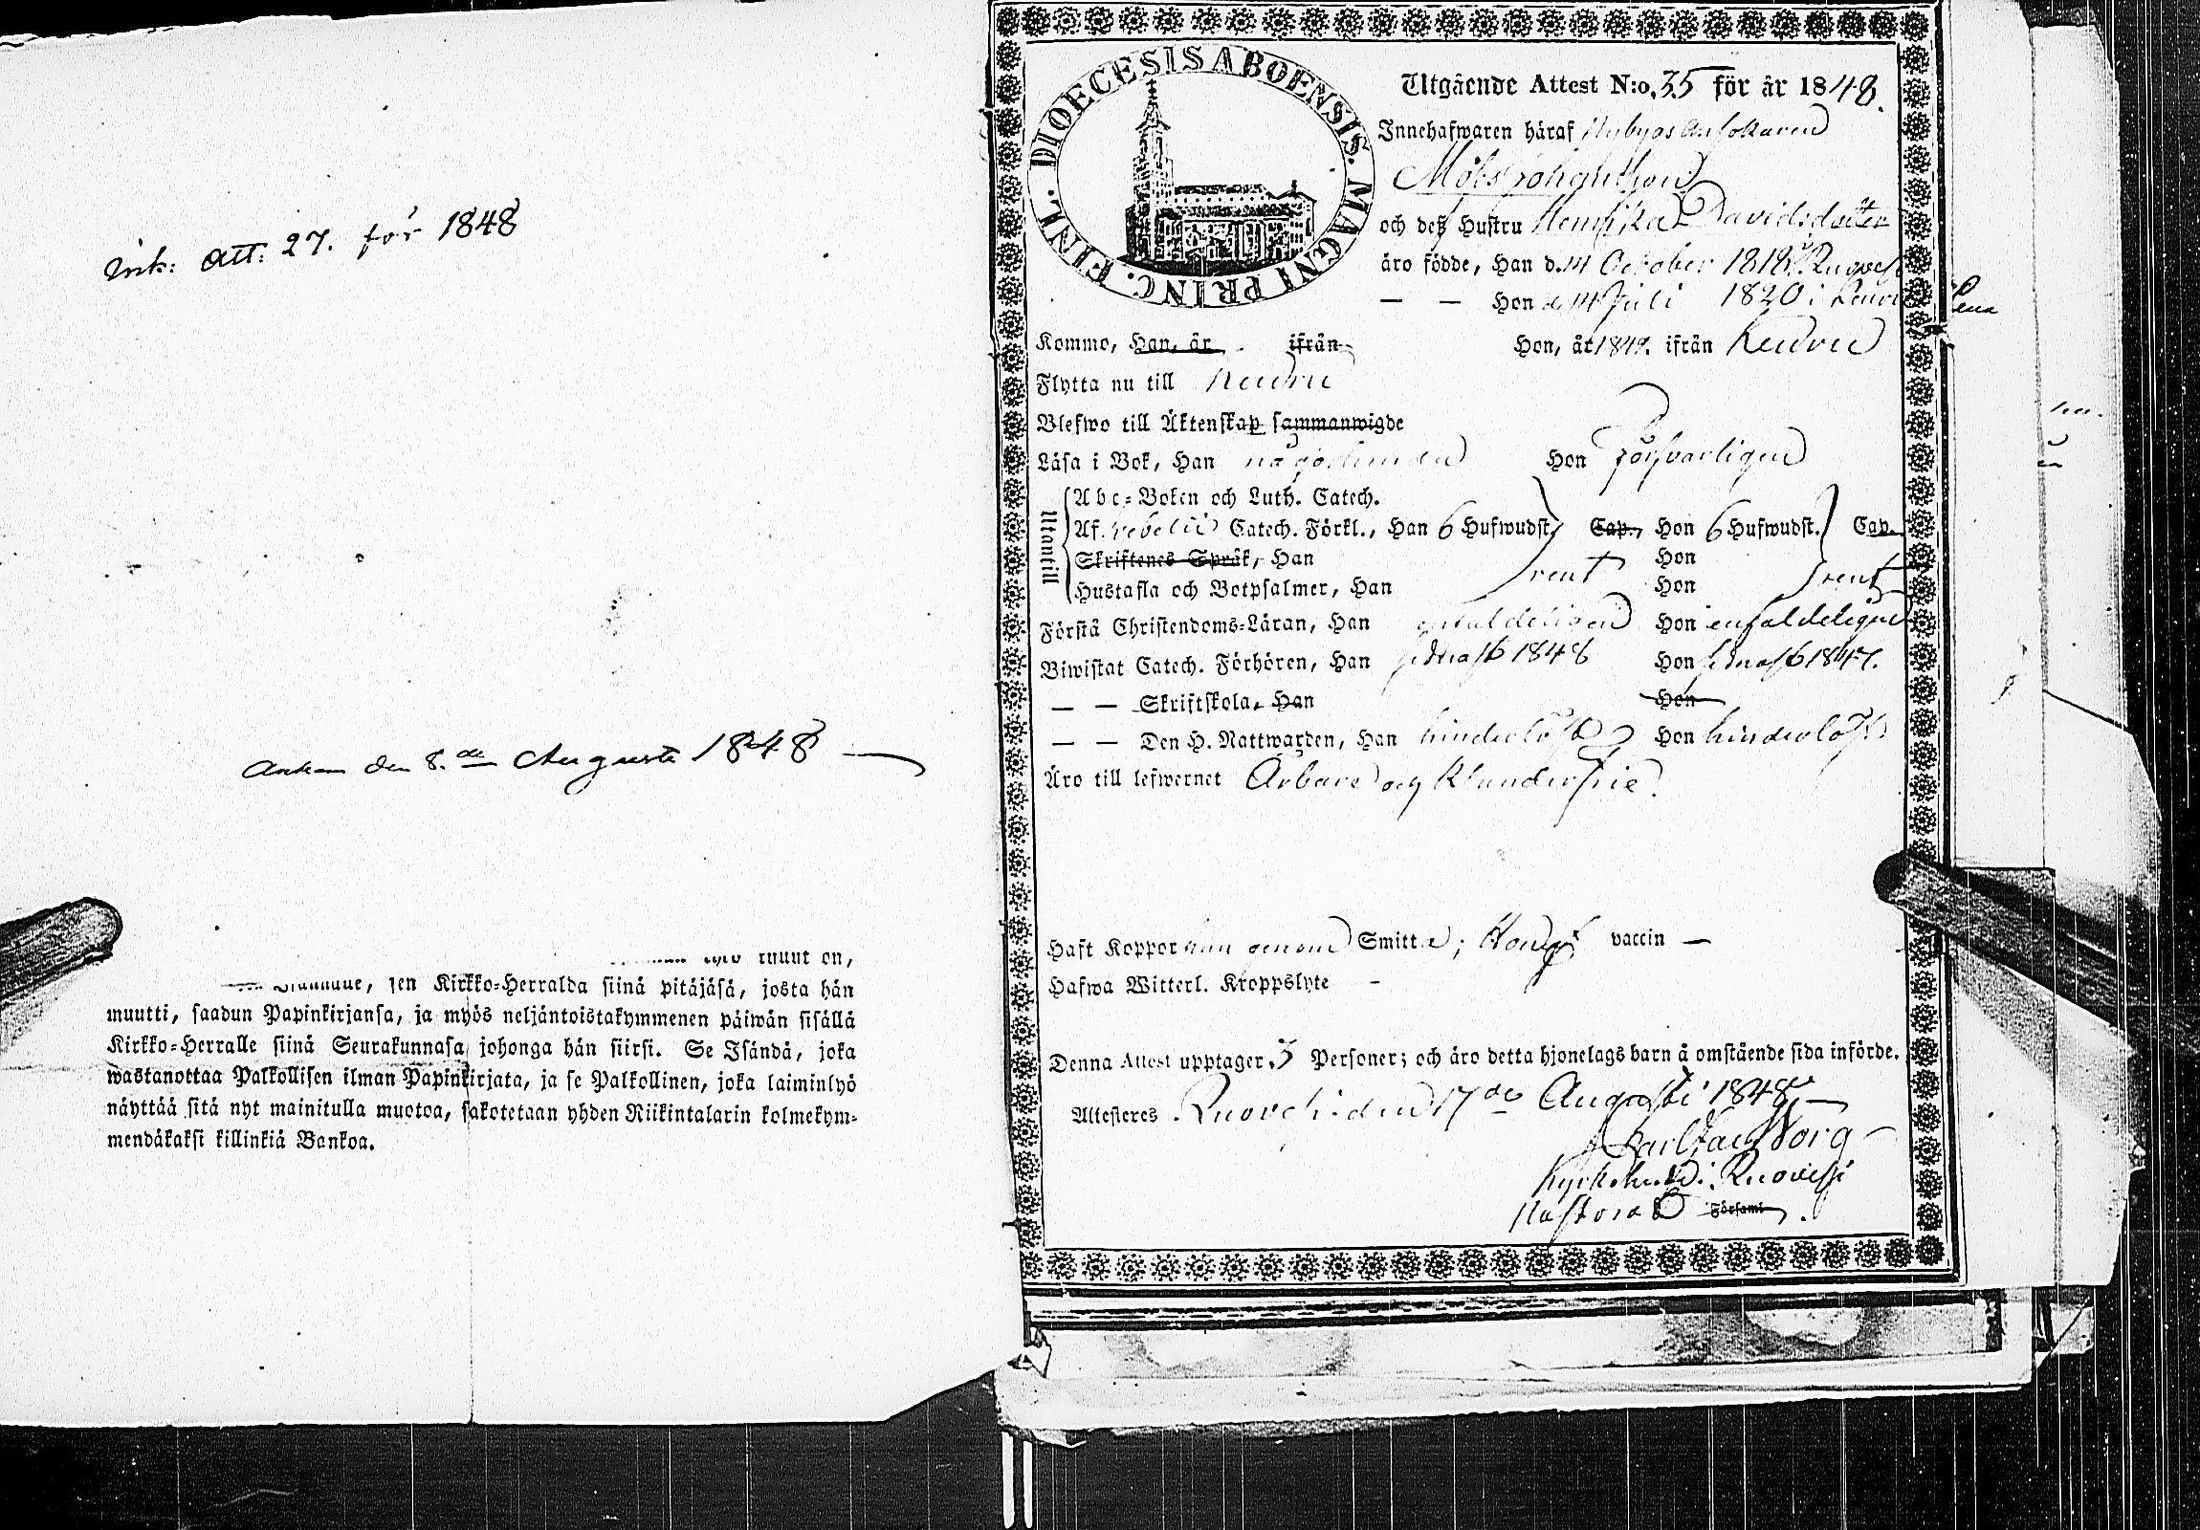 Ink: Att: 27. för 1848
Ankom den 8.de Augusti 1848 —
muut on,
sen Kirkko-Herralda siinä pitäjäsä, josta hän
muutti, saadun Papinkirjansa, ja myös neljäntoistakymmenen päiwän sisällä
Kirkko-Herralle siinä Seurakunnasa johonga hän siirsi. Se Isändä, joka
wastanottaa Palkollisen ilman Papinkirjata, ja se Palkollinen, joka laiminlyö
näyttää sitä nyt mainitulla muotoa, sakotetaan yhden Riikintalarin kolmekym-
mendäkaksi killinkiä Bankoa.
DIOECESIS ABOENSIS. MAGNI PRINC. FINL.
Utgående Attest N:o 35 för år 1848.
Innehafwaren häraf Nybygs
och deß Hustru Henrika Davidsdotter
äro födde, Han d. 14 October 1818 i Ruoves
— — Hon d. 14 Juli 1820 i Keuru
Kommo, Han, år ifrån Hon, år 1847. ifrån Keuru
Flytta nu till Keuru
Blefwo till Äktenskap sammanwigde
Läsa i Bok, Han någorlunda Hon förswarligen
Utantill
Abc-Boken och Luth. Catech.
Af Svebelii Catech. Förkl., Han 6 Hufwudst. Cap., Hon 6 Hufwudst. Cap.
Skriftenes Språk, Han Hon
Hustafla och Botpsalmer, Han rent Hon rent
Förstå Christendoms-Läran, Han enfaldeligen Hon enfaldeligen
Biwistat Catech. Förhören, Han sednast 1848 Hon sednast 1847.
— — Skriftskola, Han Hon
— — Den H. Nattwarden, Han hinderlöst Hon hinderlöst
Äro till lefwernet Ärbare och klanderfrie.
Haft Koppor han genom Smitta; Hon vaccin —
Hafwa Witterl. Kroppslyte -
Denna Attest upptager 3 Personer; och äro detta hjonelags barn å omstående sida införde.
Attesteres Ruovesi den 17de Augusti 1848 —
Carl Borg
Kyrkoherde i Ruovesi
Pastorat Församl.